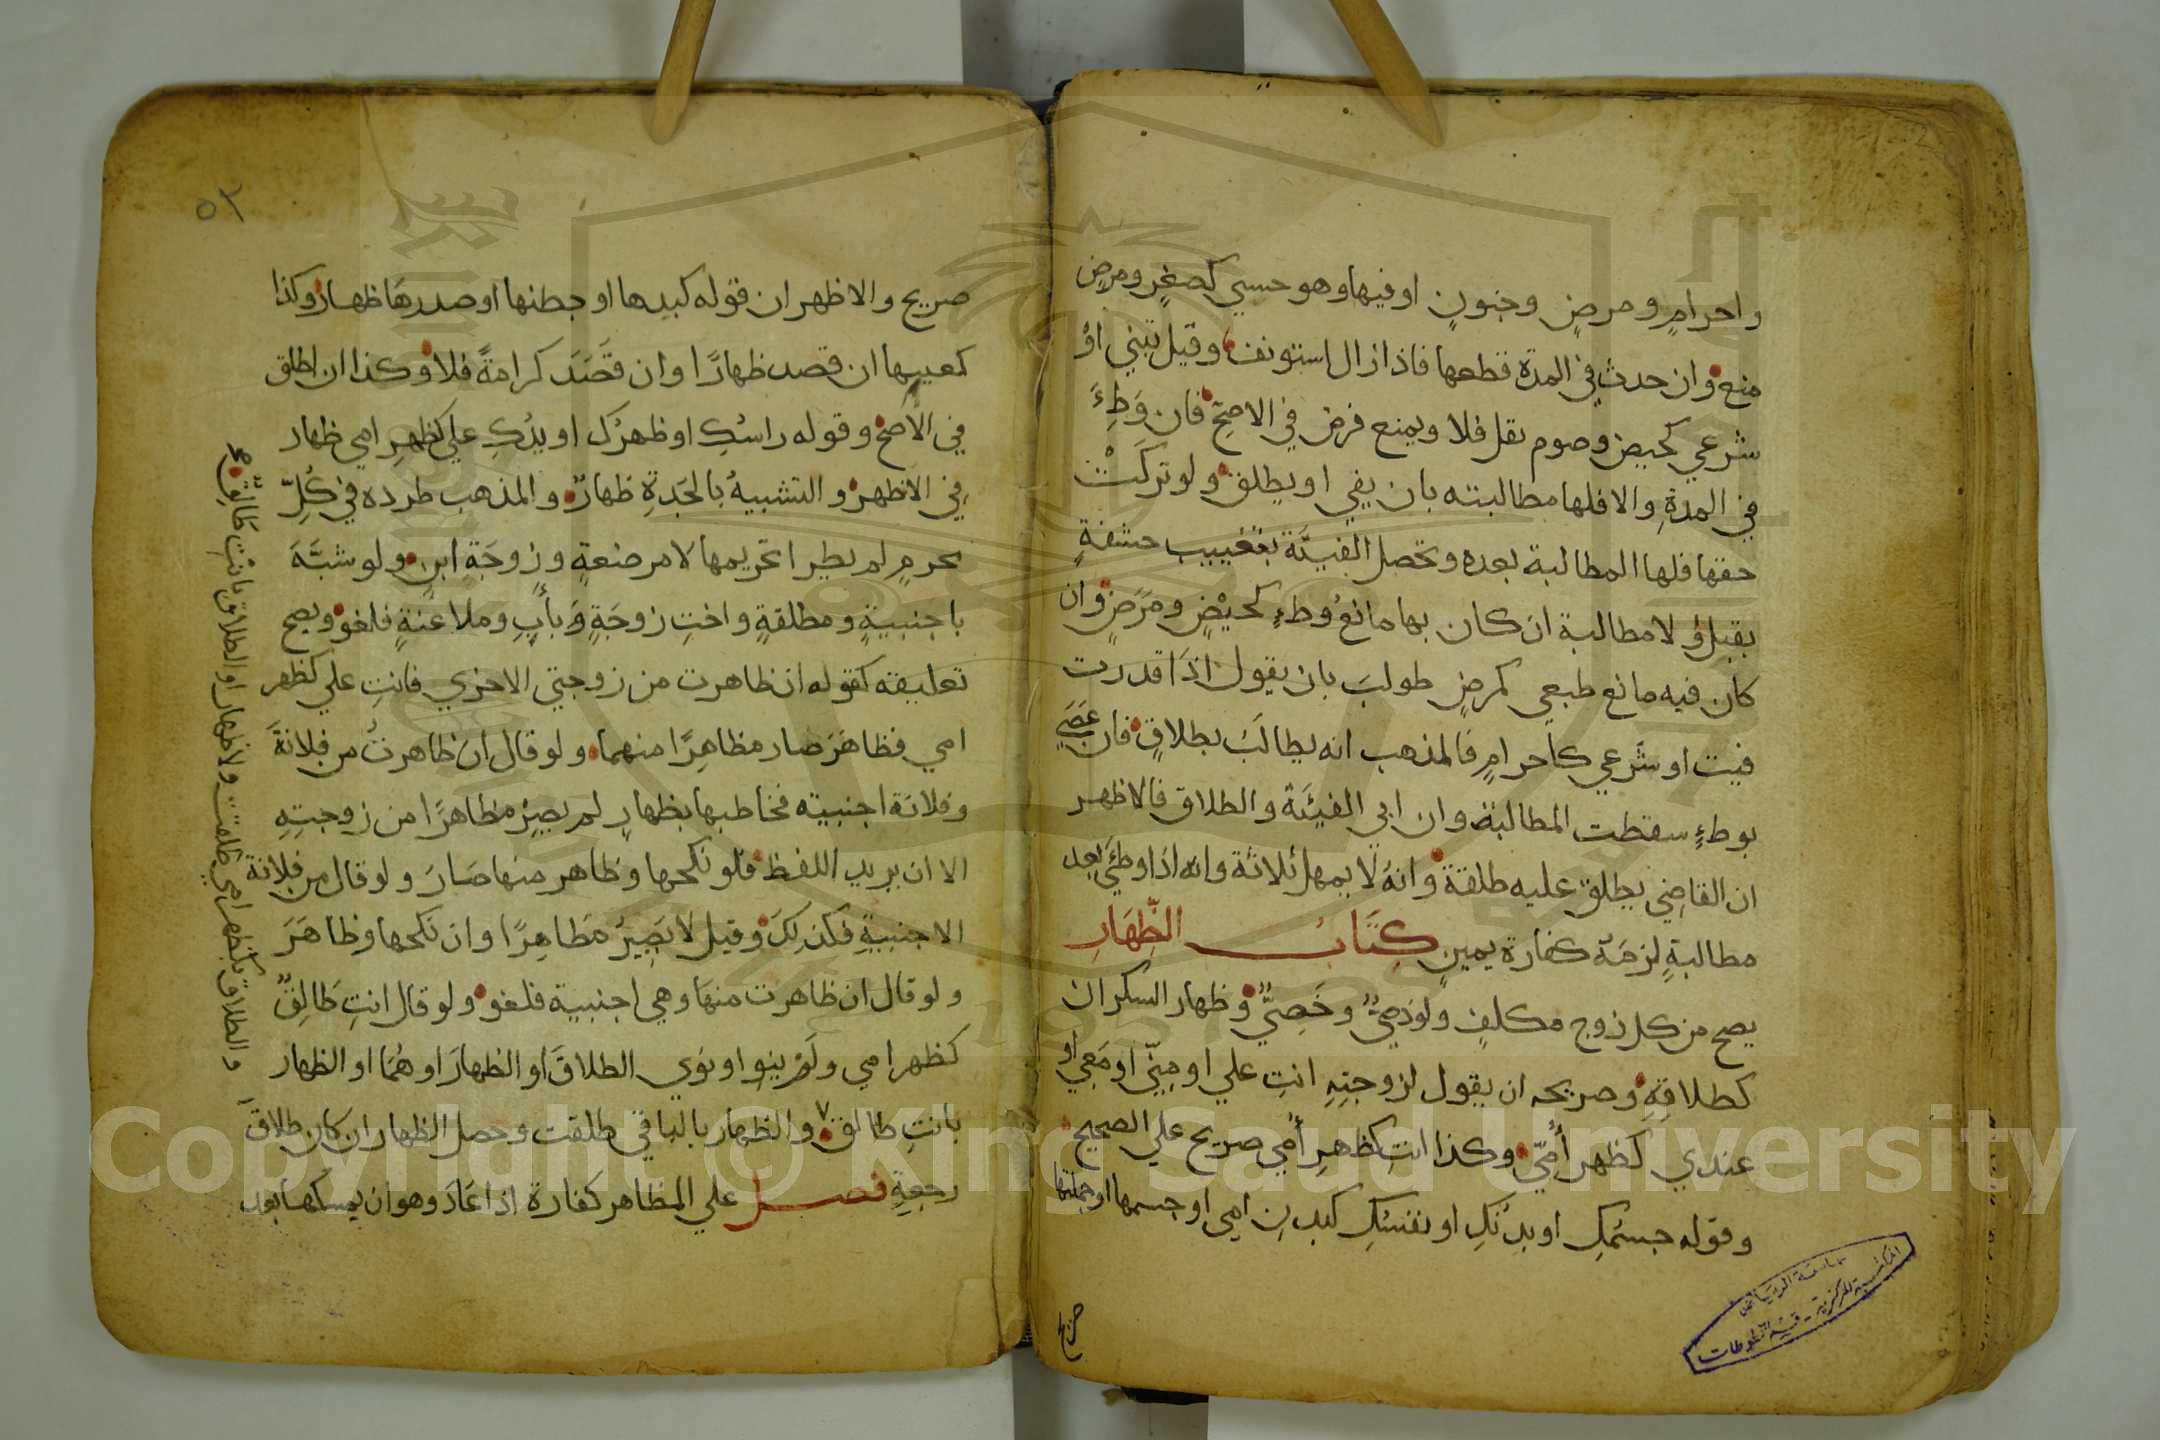 واحرامٍ ومرضٍ وجنونٍ او فيها وهو حسي كصغرٍ ومرضٍ
منع وان حدث في المدة قطعها فاذا زال استونف وقيل تبني او
شرعي كحيض وصوم نفل فلا ويمنع فرض في الاصح فان وَطِئَ
في المدةِ والا فلها مطالبته بان يفي او يطلق ولو تركَتْ
حقها فلها المطالبة بعده وتحصل الفيئَة بتغييب حشفةٍ
بقبل ولا مطالبة ان كان بها مانعُ وطءٍ كحيْضٍ ومَرَضٍ وان
كان فيه مانع طبعي كمرضٍ طولبَ بان يقول اذَا قدرت
فيت او شَرعي كاحرامٍ فالمذهب انه يطالَبَ بطلاقٍ فان عَصَي
بوطءٍ سقطت المطالبة وان ابي الفيئَة والطلاق فالاظهر
ان القاضي يطلق عليه طلقة وانهُ لا يمهل ثلاثة وانه اذا وطئَ بعد
مطالبةٍ لزمَهُ كفارة يمينٍ كِتَابُ الظِّهَارِ
يصح من كل زوج مكلفٍ ولو ذميٌّ وخَصِيٌّ وظهار السكران
كطلاقِهِ وصريحه ان يقول لزوجتِهِ انتِ علي او مِنِّي او مَعِي او
عندي كظهر أُمّي وكذا انتِ كظهرِ أمي صريح علي الصحيح
وقوله جسمُكِ او بدنُكِ او نفسُكِ كبدنِ امي او جسمها او جملتها
صريح
جامعة الرياض
المكتبة المركزية - قسم المخطوطات
٥٢
صريح والاظهر ان قوله كيدها او بطنها او صدرهَا ظهار وكذا
كعينها ان قصد ظهارًا وان قَصَدَ كرامةً فلا وكذا ان اطلق
في الأصح وقوله راسُكِ او ظهرُك او يدُكِ علي كظهرِ امي ظهار
في الاظهر والتشبيهُ بالجَدةِ ظهارٌ والمذهب طرده في كُلِّ
محرمٍ لم يطرا تحريمها لا مرضعةٍ وزوجَةِ ابنٍ ولو شبَّهَ
باجنبيةٍ ومطلقةٍ واختِ زوجَةٍ وَبأبٍ وملاعَنةٍ فلغو ويصح
تعليقه كقوله ان ظاهرت من زوجتي الاخري فانتِ علي كظهر
امي فظاهَرَ صار مظاهِرًا منهما ولو قال ان ظاهرتُ من فلانةَ
وفلانة اجنبيته فخاطبها بظهارٍ لم يصِرْ مظاهرًا من زوجتِهِ
الا ان يريد اللفظ فلو نكحها وظاهر منها صَارَ ولو قال من فلانة
الاجنبيةِ فكذلِكَ وقيل لا يَصِيرُ مُظَاهِرًا وان نكحها وظاهَرَ
ولو قال ان ظاهرت منهَا وهي اجنبية فلغو ولو قال انتِ طَالِقٌ
كظهر امي ولَمْ ينوِ او نوي الطلاقَ او الظهارَ او هُمَا او الظهار
بانتِ طالق والظهار بالباقي طلقت وحصل الظهار ان كان طلاقَ
رجعةٍ فصل علي المظاهر كفارة اذا عَادَ وهو ان يمسكها بعد
والطلاق بكظهر امي طلقت ولا ظهار او الطلاق بانْتِ طَالِقٌ